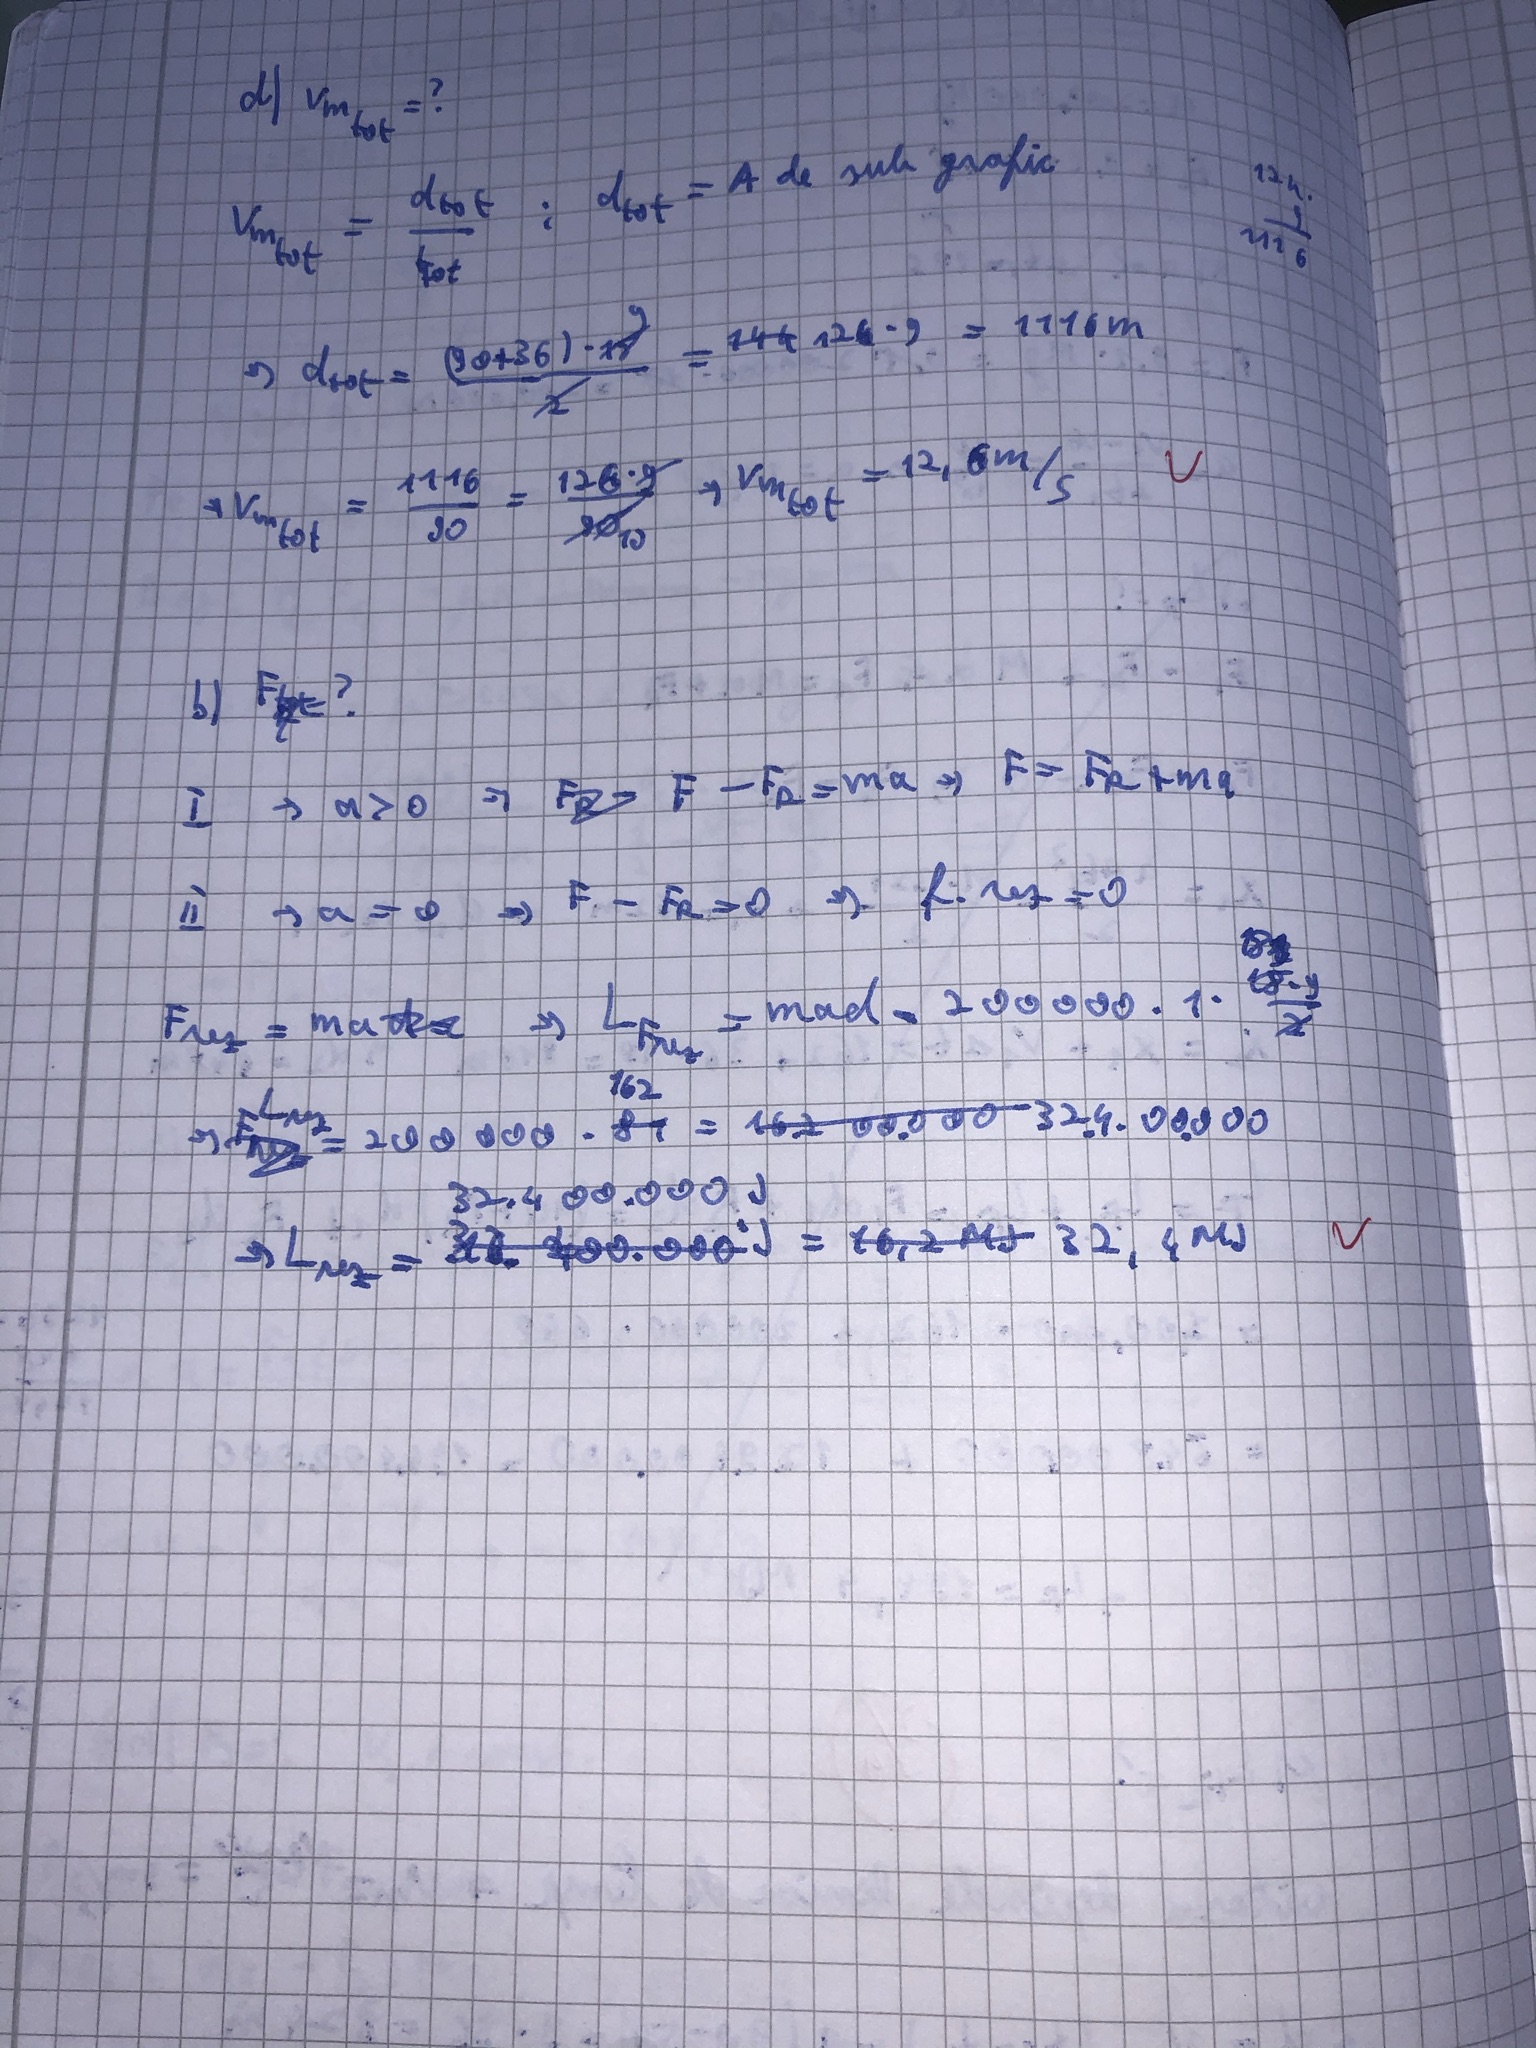 d) Vm tot = ?
Vm tot = dtot / ttot ; dtot = A de sub grafic
124.
9
1116
⇒ dtot = (90+36) · 18 9 / 2 = 144 126 · 9 = 1116 m
→ Vm tot = 1116 / 90 = 126 · 9 / 90 10 → Vm tot = 12,6 m/s V
b) F ?
I → a > 0 ⇒ FR F - FR = ma → F = FR + ma
II → a = 0 ⇒ F - FR = 0 ⇒ f. rez = 0
Frez = ma ⇒ L Frez = mad = 200000 · 1 ·
⇒ Lrez = 200 000 · 81 162 = 162 00.000 32.4.00.000
32.400.000 J
⇒ Lrez = 400.000 J = 16,2 MJ 32,4 MJ V